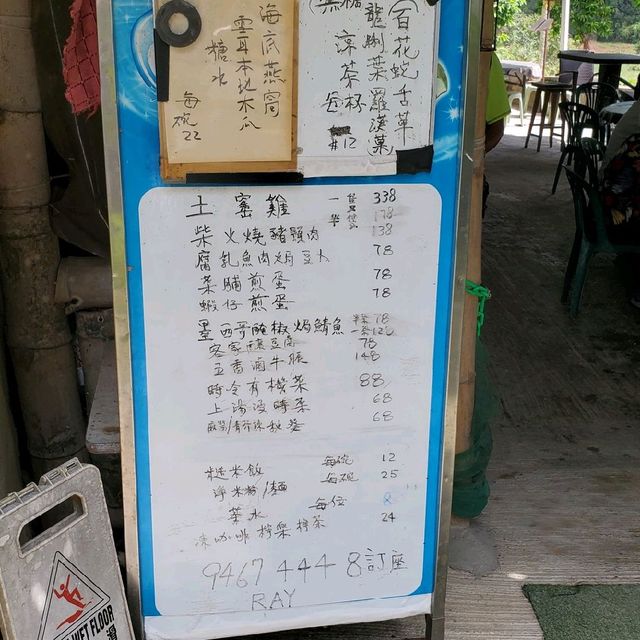 海底燕窩
雪耳本地木瓜
糖水
每碗22
(百花蛇舌草
龍脷葉羅漢菓
涼茶
每杯
$12
土窰雞 一隻 338
半 178
柴火燒豬頸肉 138
腐乳魚肉焗豆卜 78
菜脯煎蛋 78
蝦仔煎蛋 78
墨西哥酸椒焗鯖魚 半條78
一條128
客家釀豆腐 78
五香滷牛𦟌 148
時令有機菜 88
上湯浸時菜 68
68
糙米飯 每碗 12
淨米粉/麵 每碗 25
茶水 每位 8
凍咖啡檸樂檸茶 24
9467 444 8 訂座
RAY
WET FLOOR